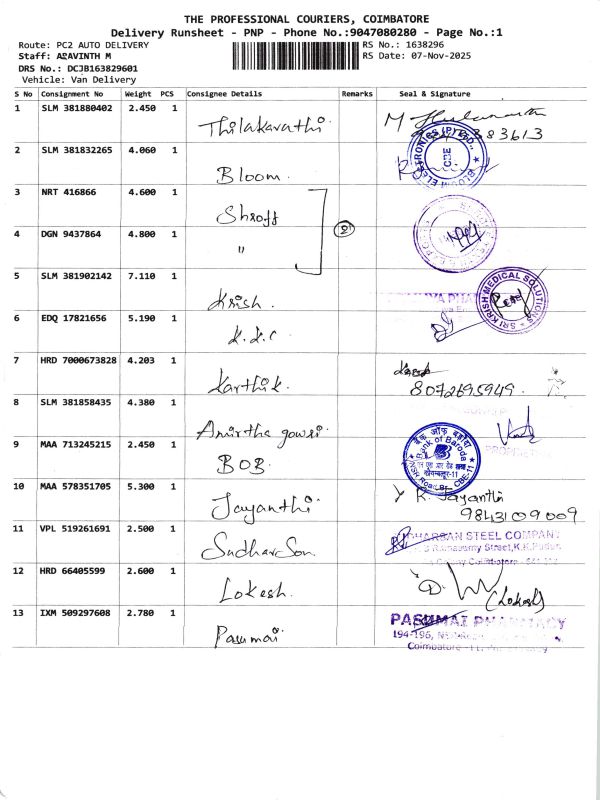 THE PROFESSIONAL COURIERS, COIMBATORE
Delivery Runsheet - PNP - Phone No.:9047080280 - Page No.:1
Route: PC2 AUTO DELIVERY RS No.: 1638296
Staff: ARAVINTH M RS Date: 07-Nov-2025
DRS No.: DCJB163829601
Vehicle: Van Delivery
S No Consignment No Weight PCS Consignee Details Remarks Seal & Signature
1 SLM 381880402 2.450 1 Thilakavathi. M
83613
2 SLM 381832265 4.060 1 Bloom. BLOOM ELECTRONICS (P) LTD., CBE
3 NRT 416866 4.600 1 Shroff
4 DGN 9437864 4.800 1 " 2
5 SLM 381902142 7.110 1 Krish. SRI KRISH MEDICAL SOLUTIONS
6 EDQ 17821656 5.190 1 K.K.C
7 HRD 7000673828 4.203 1 Karthik.
8072695949
8 SLM 381858435 4.380 1 Amirtha gowri.
9 MAA 713245215 2.450 1 BOB. बैंक ऑफ़ बड़ौदा Bank of Baroda CBE-11
10 MAA 578351705 5.300 1 Jayanthi. K. Jayanthi
9843109009
11 VPL 519261691 2.500 1 Sudharson. STEEL COMPANY
Street, K.K.Pudur,
12 HRD 66405599 2.600 1 Lokesh. (Lokesh)
13 IXM 509297608 2.780 1 Pasumai PASUMAI PHARMACY
194-196,
Coimbatore - 11.